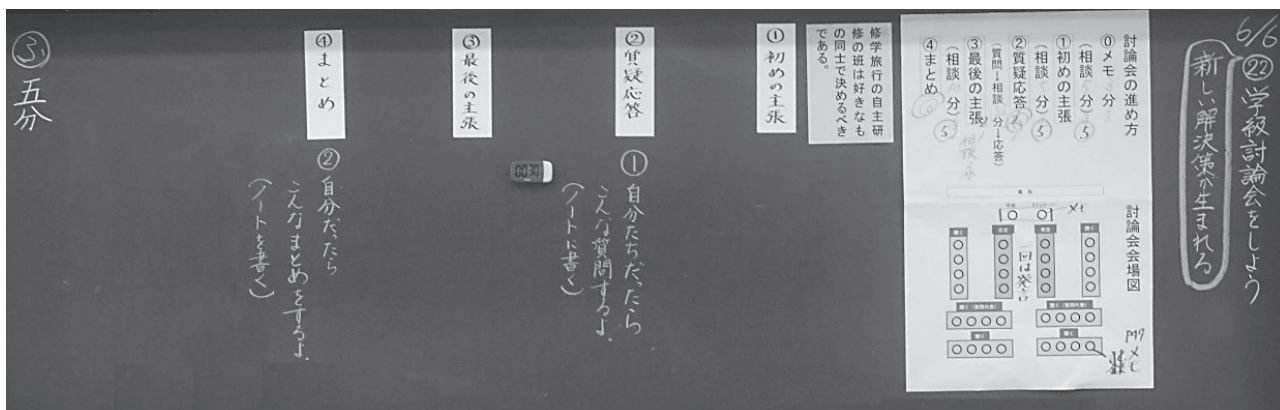 6/6
㉒学級討論会をしよう
新しい解決策が生まれる
討論会の進め方
⓪メモ 分
(相談 分)⑤
①初めの主張
(相談 分)⑤
②質疑応答
(質問→相談 分→応答)
③最後の主張
(相談 分)⑤
④まとめ
討論会会場図
メモ
聞く
否定
肯定
聞く
一回は発言
聞く(質問代表)
聞く(質問代表)
聞く
聞く
メモ
修学旅行の自主研
修の班は好きなも
の同士で決めるべき
である。
①初めの主張
②質疑応答
①自分たちだったら
こんな質問するよ.
(ノートに書く)
00:30
③最後の主張
④まとめ
②自分だったら
こんなまとめをするよ.
(ノートを書く)
ふ 五分